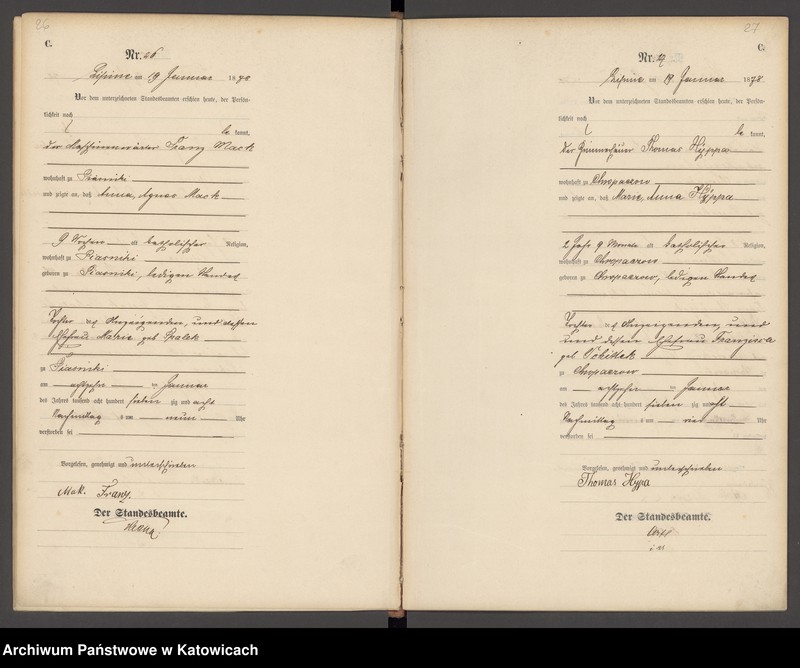 26
C.
Nr. 26
Lipine am 19 Januar 1878
Vor dem unterzeichneten Standesbeamten erschien heute, der Persön-
lichkeit nach
be kannt,
der Maschinenwärter Franz Mack
wohnhaft zu Piasniki
und zeigte an, daß Anna, Agnes Mack
9 Wochen a katholischer Religion,
wohnhaft zu Piasniki
geboren zu Piasniki, ledigen Standes
Tochter des Anzeigenden, und dessen
Ehefrau Marie geb
zu Piasniki
am achtzehn ten Januar
des Jahres tausend acht hundert sieben zig und acht
Nachmittag s um neun Uhr
verstorben sei
Vorgelesen, genehmigt und unterschrieben
Mak. Franz.
Der Standesbeamte.
27
C.
Nr. 27
Lipine am 19 Januar 1878
Vor dem unterzeichneten Standesbeamten erschien heute, der Persön-
lichkeit nach
be kannt,
der Zimmerhäuer Thomas Hyppa
wohnhaft zu Chropaczow
und zeigte an, daß Marie, Anna Hyppa
2 Jahr 9 Monate alt katholischer Religion,
wohnhaft zu Chropaczow
geboren zu Chropaczow, ledigen Standes
Tochter des Anzeigenden, und
und dessen Ehefrau Franziska
geb
zu Chropaczow
am achtzehn ten Januar
des Jahres tausend acht hundert sieben zig und acht
Nachmittag s um vier Uhr
verstorben sei
Vorgelesen, genehmigt und unterschrieben
Thomas Hypa
Der Standesbeamte.
Archiwum Państwowe w Katowicach